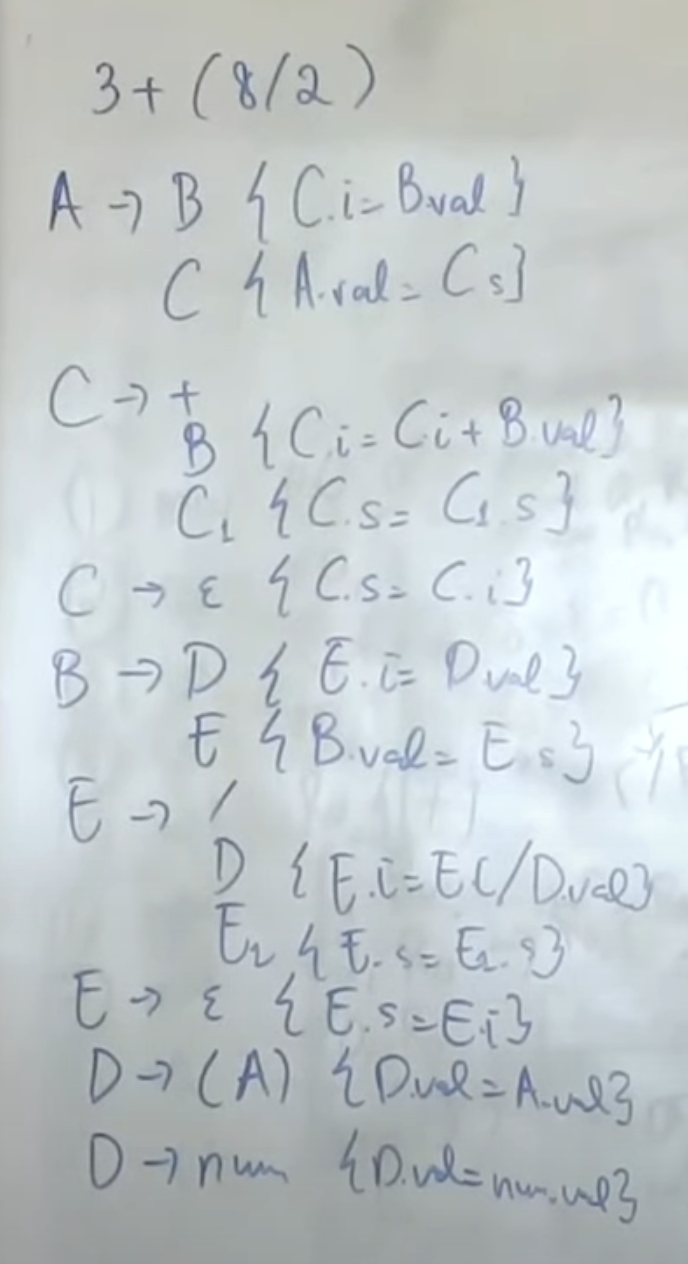 3+(8/2)
A → B { C.i = B.val }
C { A.val = C s}
C → +
B { C.i = C.i + B.val}
C₁ { C.s = C₁.s }
C → ε { C.s = C.i}
B → D { E.i = D.val }
E { B.val = E.s}
E → /
D { E.i = E.i / D.val}
E₂ { E.s = E₂.s}
E → ε { E.s = E.i}
D → (A) { D.val = A.val}
D → num { D.val = num.val}